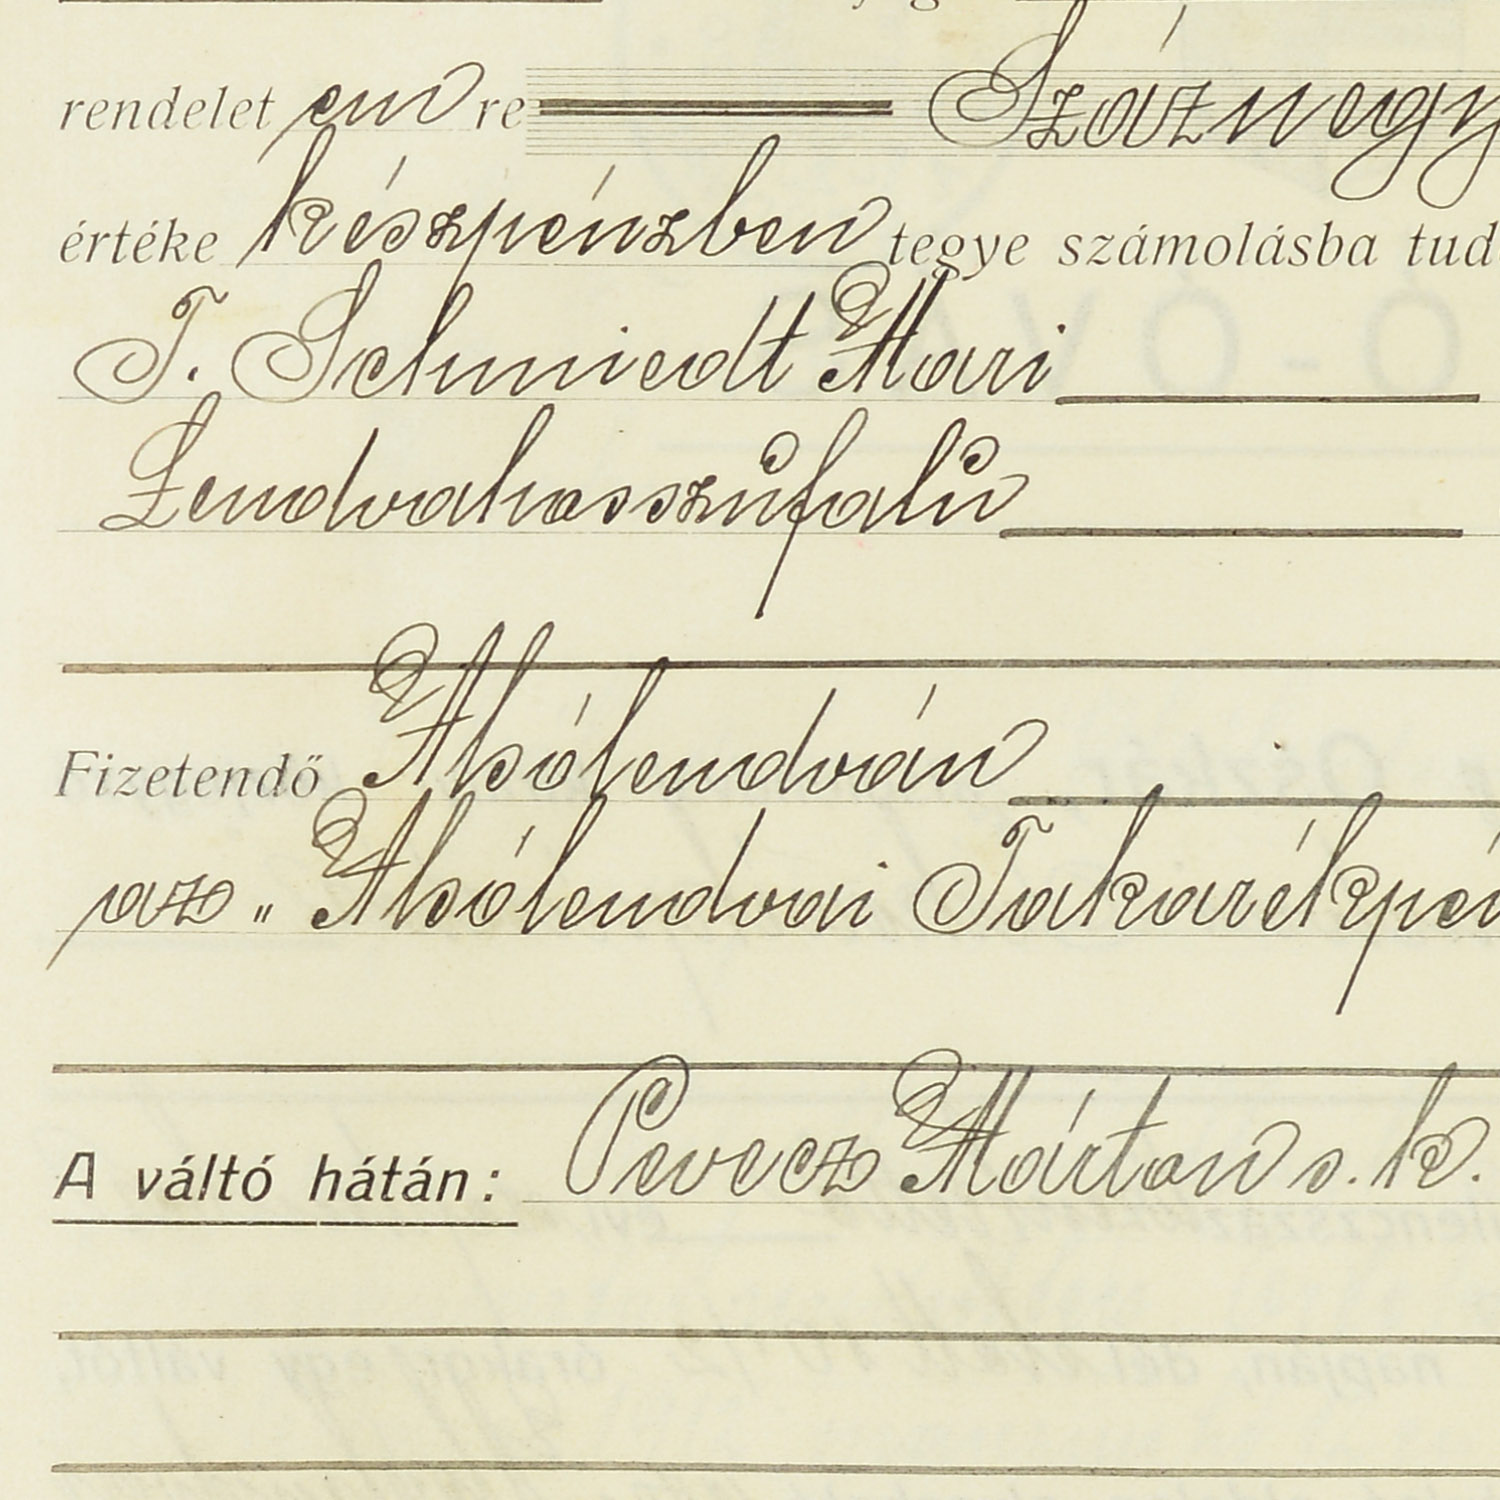 rendelet em re Száznegy
értéke készpénzben tegye számolásba tud
T. Schmiedt Mari
Lendvahosszúfalu
Fizetendő Alsólendván
az „ Alsólendvai Takarékpén
A váltó hátán: Pevecz Márton s. k.